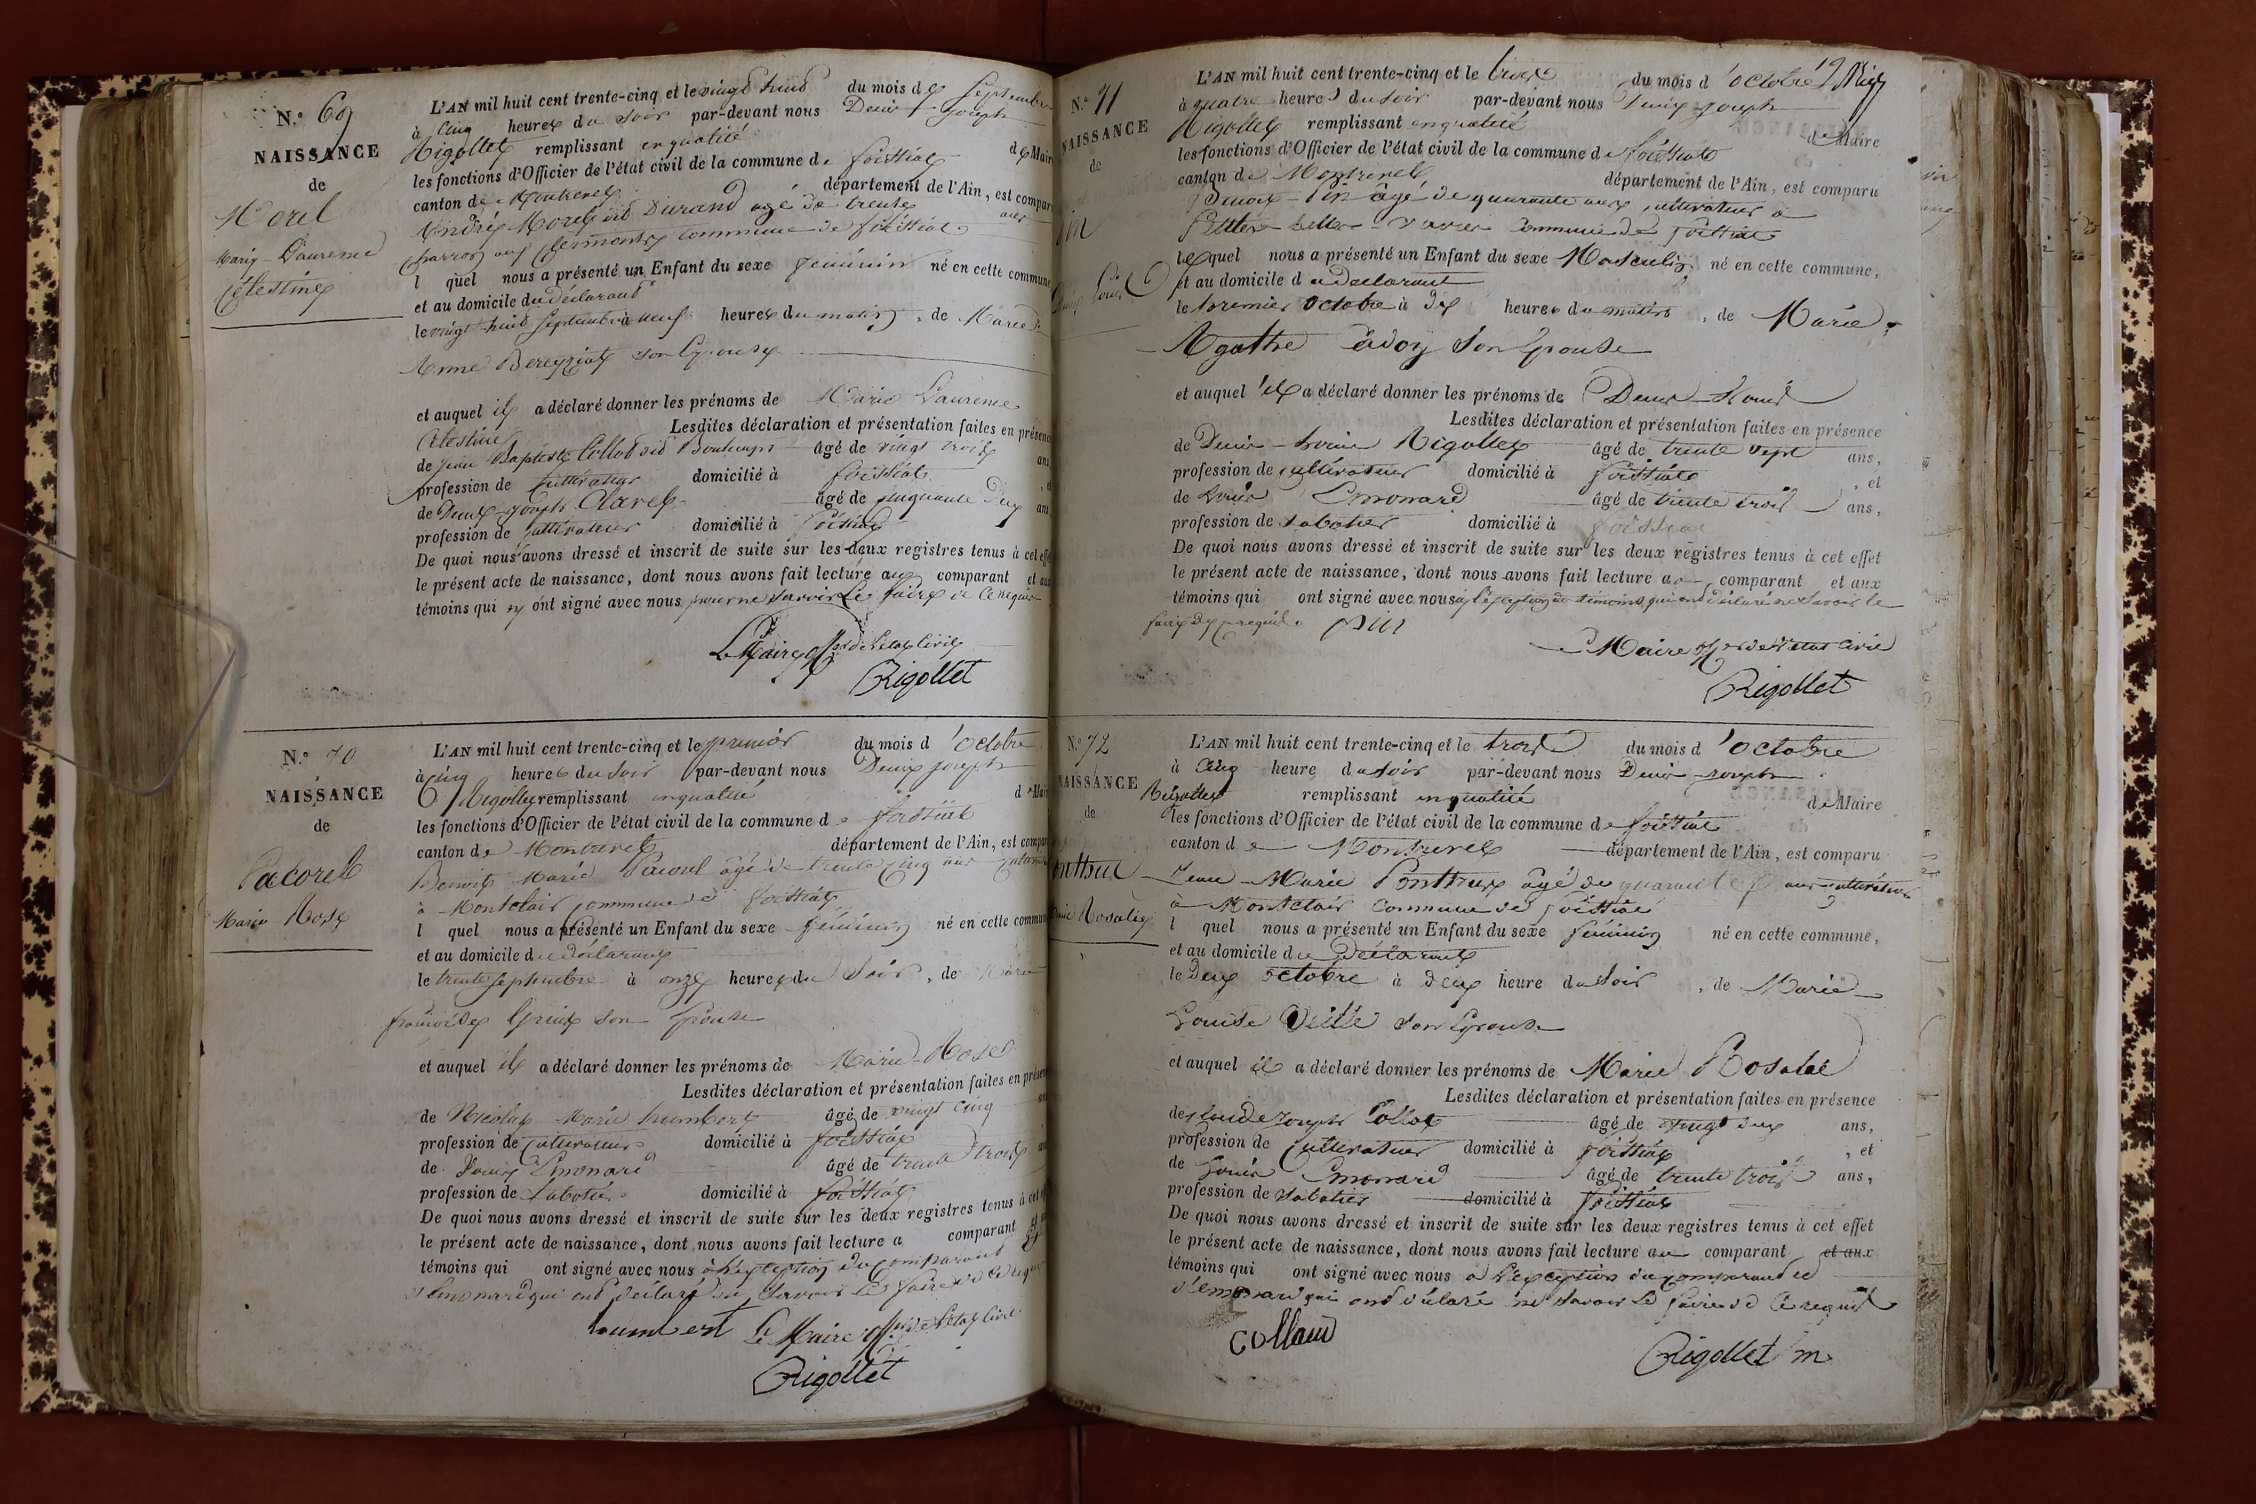 N.° 69
NAISSANCE
de
Morel
Marie-Laurence
Célestine
L'AN mil huit cent trente-cinq et le vingt huit du mois de Septembre
à cinq heures du soir par-devant nous Denis Joseph
Rigollet remplissant en qualité de Maire
les fonctions d'Officier de l'état civil de la commune de foissiat
canton de Montrevel département de l'Ain, est comparu
André Morel dit Durand agé de trente ans
commune de foissiat
l quel nous a présenté un Enfant du sexe féminin né en cette commune
et au domicile du déclarant
le vingt huit Septembre à neuf heures du matin, de Marie
Anne Bereyziat son Epouse
et auquel il a déclaré donner les prénoms de Marie Laurence
Célestine Lesdites déclaration et présentation faites en présence
de Jean Baptiste Collod dit âgé de vingt trois ans
profession de cultivateur domicilié à foissiat, et
de Denis Joseph Clarel âgé de cinquante deux ans
profession de cultivateur domicilié à foissiat
De quoi nous avons dressé et inscrit de suite sur les deux registres tenus à cet effet
le présent acte de naissance, dont nous avons fait lecture au comparant et aux
témoins qui n'y ont signé avec nous pour ne savoir le faire de ce requis
Le Maire off.er de l'état Civil
Rigollet
N.° 70
NAISSANCE
de
Pacoret
Marie Rose
L'AN mil huit cent trente-cinq et le premier du mois d'octobre
à cinq heures du soir par-devant nous Denis Joseph
Rigollet remplissant en qualité de Maire
les fonctions d'Officier de l'état civil de la commune de foissiat
canton de Montrevel département de l'Ain, est comparu
Benoit Marie Pacoret agé de trente cinq ans cultivateur
à Montclair commune de foissiat
l quel nous a présenté un Enfant du sexe féminin né en cette commune
et au domicile du déclarant
le trente septembre à onze heures du Soir, de Marie
françoise son Epouse
et auquel il a déclaré donner les prénoms de Marie-Rose
Lesdites déclaration et présentation faites en présence
de Nicolas Marie humbert âgé de vingt cinq
profession de cultivateur domicilié à foissiat
de Louis Emonard âgé de trente trois
profession de sabotier domicilié à foissiat
De quoi nous avons dressé et inscrit de suite sur les deux registres tenus à cet
le présent acte de naissance, dont nous avons fait lecture a comparant et
témoins qui ont signé avec nous à l'exception du comparant et
d'Emonard qui ont déclaré ne Savoir le faire de ce requis
humbert Le Maire off.er de l'état Civil
Rigollet
N.° 71
NAISSANCE
de
Pin
Denis Louis
L'AN mil huit cent trente-cinq et le trois du mois d'octobre
à quatre heures du soir par-devant nous Denis Joseph
Rigollet remplissant en qualité de Maire
les fonctions d'Officier de l'état civil de la commune de foissiat
canton de Montrevel département de l'Ain, est comparu
Benoit Pin âgé de quarante ans cultivateur à
commune de foissiat
lequel nous a présenté un Enfant du sexe Masculin né en cette commune,
et au domicile du déclarant
le premier octobre à dix heures du matin, de Marie
Agathe Cadoy son Epouse
et auquel il a déclaré donner les prénoms de Denis Louis
Lesdites déclaration et présentation faites en présence
de Denis-Louis Rigollet âgé de trente sept ans,
profession de cultivateur domicilié à foissiat, et
de Louis Emonard âgé de trente trois ans,
profession de sabotier domicilié à foissiat
De quoi nous avons dressé et inscrit de suite sur les deux registres tenus à cet effet
le présent acte de naissance, dont nous avons fait lecture au comparant et aux
témoins qui ont signé avec nous à l'exception des témoins qui ont déclaré ne savoir le
faire de ce requis pin
Maire off.er de l'état Civil
Rigollet
N.° 72
NAISSANCE
de
Ponthus
Marie Rosalie
L'AN mil huit cent trente-cinq et le trois du mois d'octobre
à cinq heure du soir par-devant nous Denis-Joseph
Rigollet remplissant en qualité de Maire
les fonctions d'Officier de l'état civil de la commune de foissiat
canton de Montrevel département de l'Ain, est comparu
Jean-Marie Ponthus âgé de quarante ans cultivateur
à Montclair commune de foissiat
l quel nous a présenté un Enfant du sexe féminin né en cette commune,
et au domicile du déclarant
le deux octobre à deux heure du Soir, de Marie
Louise son Epouse
et auquel il a déclaré donner les prénoms de Marie Rosalie
Lesdites déclaration et présentation faites en présence
de Claude Joseph âgé de vingt deux ans,
profession de cultivateur domicilié à foissiat, et
de Louis Emonard âgé de trente trois ans,
profession de sabotier domicilié à foissiat
De quoi nous avons dressé et inscrit de suite sur les deux registres tenus à cet effet
le présent acte de naissance, dont nous avons fait lecture au comparant et aux
témoins qui ont signé avec nous à l'exception du comparant et
d'emonard qui ont déclaré ne savoir le faire de ce requis
Rigollet m